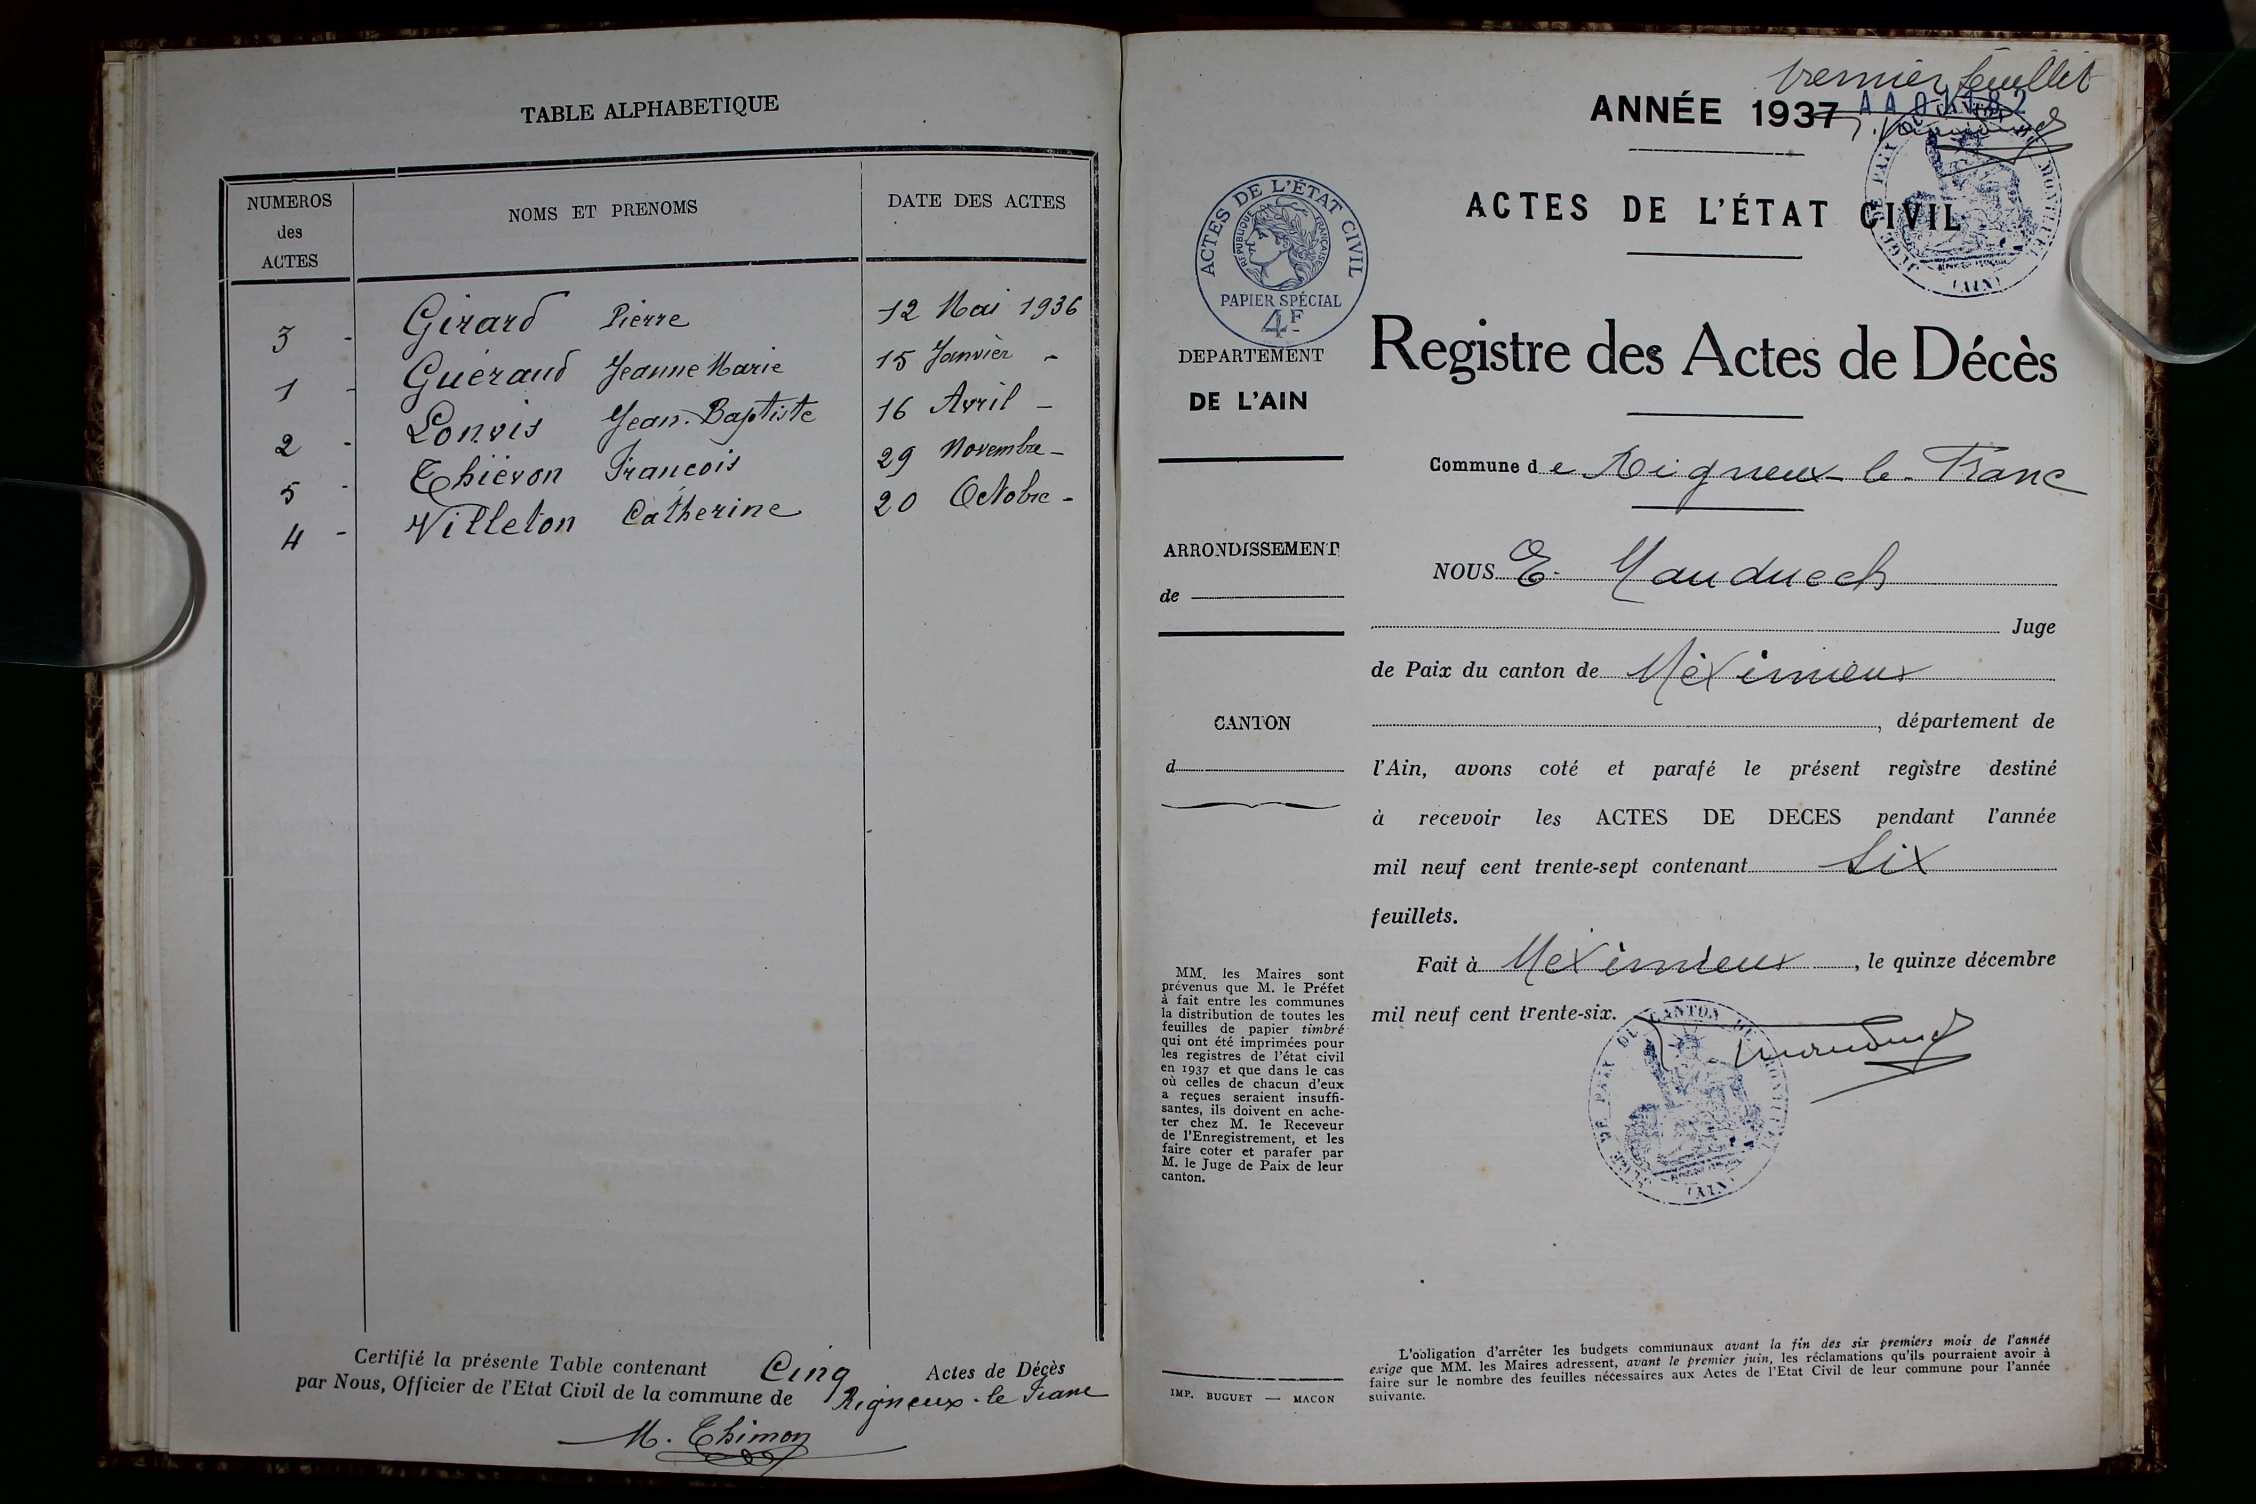 TABLE ALPHABETIQUE
NUMEROS
des
ACTES
NOMS ET PRENOMS
DATE DES ACTES
3 - Girard Pierre 12 Mai 1936
1 - Guéraud Jeanne Marie 15 Janvier -
2 - Lonvis Jean-Baptiste 16 Avril -
5 - Thiévon François 29 Novembre -
4 - Villeton Catherine 20 Octobre -
Certifié la présente Table contenant Cinq Actes de Décès
par Nous, Officier de l'Etat Civil de la commune de Rigneux-le Franc
M. Thimon
premier feuillet
ANNÉE 1937
AA 01182
ACTES DE L'ÉTAT CIVIL
ACTES DE L'ÉTAT CIVIL
RÉPUBLIQUE FRANÇAISE
PAPIER SPÉCIAL
4F
JUGE DE PAIX DU CANTON DE MONTLUEL
(AIN)
DEPARTEMENT
DE L'AIN
Registre des Actes de Décès
Commune de Rigneux-le-Franc
ARRONDISSEMENT
de
NOUS E. Mauduech
Juge
de Paix du canton de Méximieux
CANTON
d
, département de
l'Ain, avons coté et parafé le présent registre destiné
à recevoir les ACTES DE DECES pendant l'année
mil neuf cent trente-sept contenant Six
feuillets.
Fait à Meximieux, le quinze décembre
mil neuf cent trente-six.
JUGE DE PAIX DU CANTON DE MONTLUEL
(AIN)
MM. les Maires sont
prévenus que M. le Préfet
à fait entre les communes
la distribution de toutes les
feuilles de papier timbré
qui ont été imprimées pour
les registres de l'état civil
en 1937 et que dans le cas
où celles de chacun d'eux
a reçues seraient insuffi-
santes, ils doivent en ache-
ter chez M. le Receveur
de l'Enregistrement, et les
faire coter et parafer par
M. le Juge de Paix de leur
canton.
IMP. BUGUET — MACON
L'obligation d'arrêter les budgets communaux avant la fin des six premiers mois de l'année
exige que MM. les Maires adressent, avant le premier juin, les réclamations qu'ils pourraient avoir à
faire sur le nombre des feuilles nécessaires aux Actes de l'Etat Civil de leur commune pour l'année
suivante.